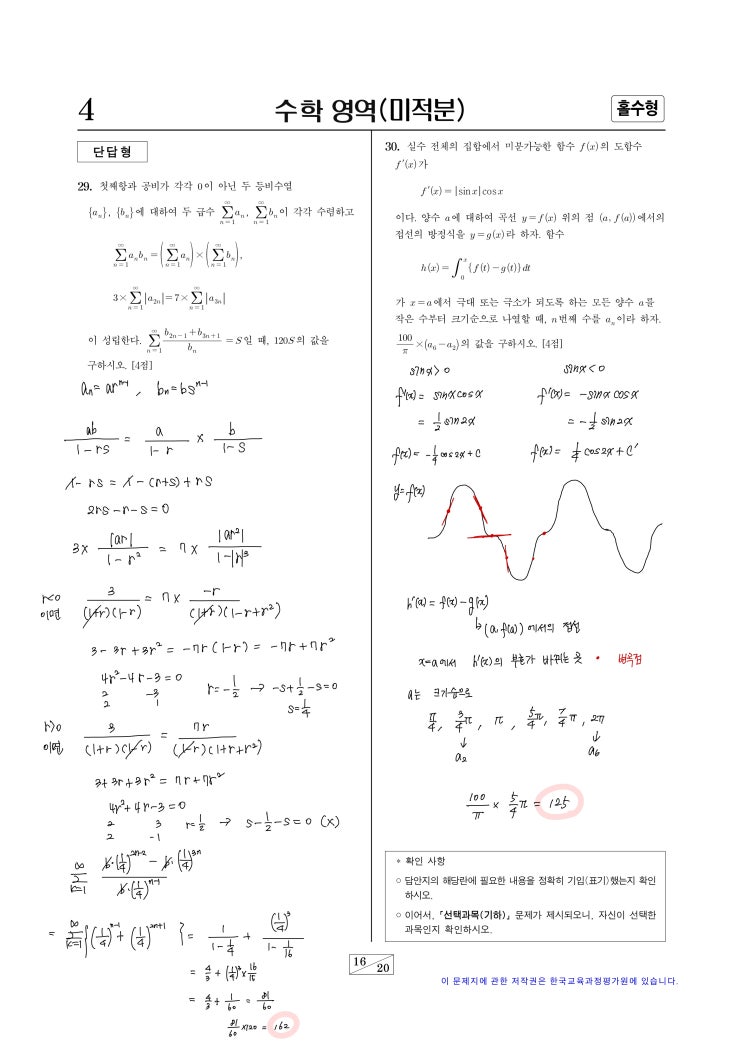 4
수학 영역(미적분)
홀수형
단답형
29. 첫째항과 공비가 각각 0이 아닌 두 등비수열
{aₙ}, {bₙ}에 대하여 두 급수 ∑_{n=1}^{∞} aₙ, ∑_{n=1}^{∞} bₙ이 각각 수렴하고
∑_{n=1}^{∞} aₙbₙ = (∑_{n=1}^{∞} aₙ) × (∑_{n=1}^{∞} bₙ),
3×∑_{n=1}^{∞} |a₂ₙ| = 7×∑_{n=1}^{∞} |a₃ₙ|
이 성립한다. ∑_{n=1}^{∞} (b₂ₙ₋₁+b₃ₙ₊₁)/bₙ = S일 때, 120S의 값을
구하시오. [4점]
aₙ=arⁿ⁻¹, bₙ=bsⁿ⁻¹
ab/(1-rs) = a/(1-r) × b/(1-s)
1-rs = 1-(r+s)+rs
2rs-r-s=0
3× |ar|/(1-r²) = 7× |ar²|/(1-|r|³)
r<0 이면 3/((1+r)(1-r)) = 7× -r/((1+r)(1-r+r²))
3-3r+3r² = -7r(1-r) = -7r+7r²
4r²-4r-3=0
2 -3
2 1
r=-1/2 → -s+1/2-s=0
s=1/4
r>0 이면 3/((1+r)(1-r)) = 7r/((1-r)(1+r+r²))
3+3r+3r² = 7r+7r²
4r²+4r-3=0
2 3
2 -1
r=1/2 → s-1/2-s=0 (X)
∑_{k=1}^{∞} (b·(1/4)²ⁿ⁻² - b·(1/4)³ⁿ)/(b·(1/4)ⁿ⁻¹)
= ∑_{k=1}^{∞} {(1/4)ⁿ⁻¹+(1/4)²ⁿ⁺¹} = 1/(1-1/4) + (1/4)³/(1-1/16)
= 4/3 + (1/4)³×16/15
= 4/3 + 1/60 = 81/60
81/60 ×120 = 162
30. 실수 전체의 집합에서 미분가능한 함수 f(x)의 도함수
f′(x)가
f′(x)=|sinx|cosx
이다. 양수 a에 대하여 곡선 y=f(x) 위의 점 (a, f(a))에서의
접선의 방정식을 y=g(x)라 하자. 함수
h(x)=∫₀ˣ{f(t)-g(t)}dt
가 x=a에서 극대 또는 극소가 되도록 하는 모든 양수 a를
작은 수부터 크기순으로 나열할 때, n번째 수를 aₙ이라 하자.
100/π ×(a₆-a₂)의 값을 구하시오. [4점]
sinx>0 sinx<0
f′(x)= sinxcosx f′(x)= -sinxcosx
= 1/2 sin2x = -1/2 sin2x
f(x)= -1/4 cos2x+C f(x)= 1/4 cos2x+C′
y=f(x)
h′(x)=f(x)-g(x)
(a, f(a))에서의 접선
x=a에서 h′(x)의 부호가 바뀌는 곳 • 변곡점
a는 크기순으로
π/4, 3/4π, π, 5/4π, 7/4π, 2π
↓ ↓
a₂ a₆
100/π × 5/4π = 125
* 확인 사항
○ 답안지의 해당란에 필요한 내용을 정확히 기입(표기)했는지 확인
하시오.
○ 이어서, 「선택과목(기하)」 문제가 제시되오니, 자신이 선택한
과목인지 확인하시오.
16 20
이 문제지에 관한 저작권은 한국교육과정평가원에 있습니다.